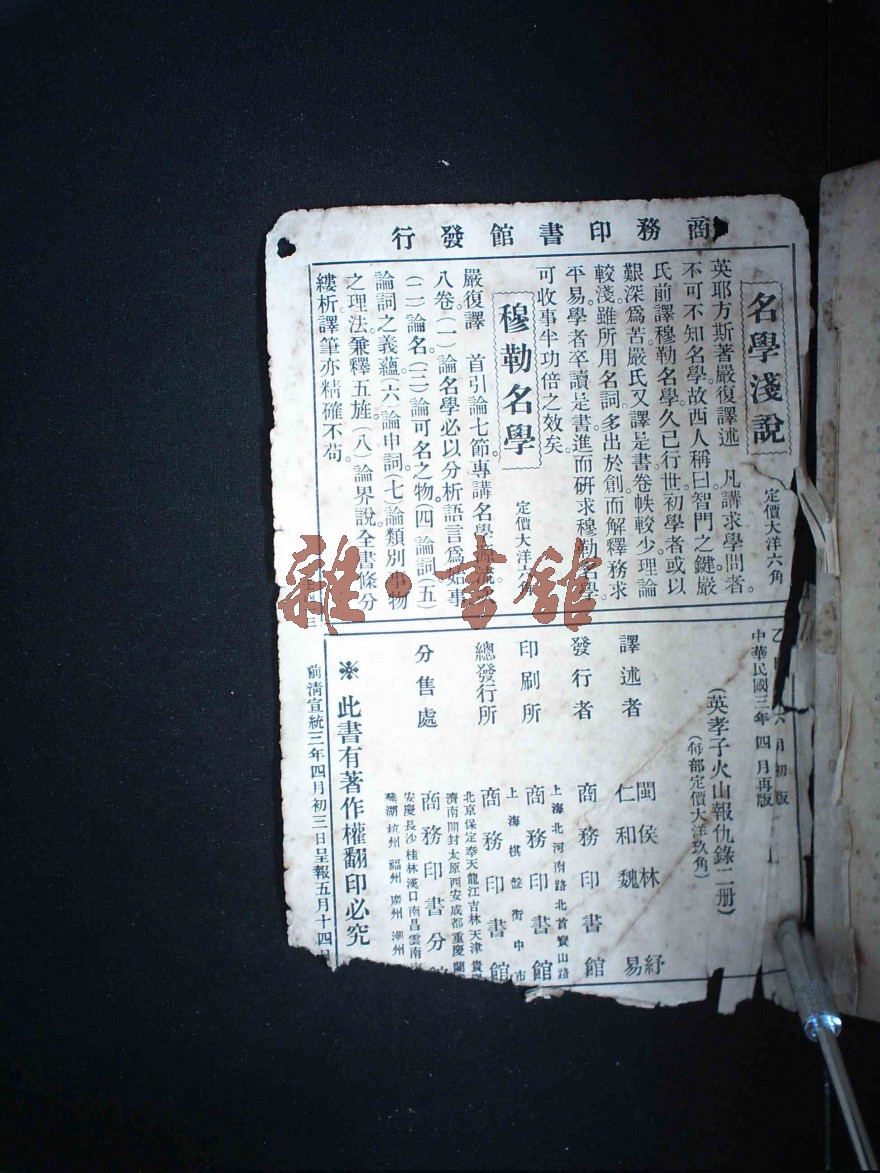 商務印書館發行
名學淺說
定價大洋六角
英耶方斯著嚴復譯述　凡講求學問者。
不可不知名學。故西人稱曰智門之鍵。嚴
氏前譯穆勒名學。久已行世。初學者或以
艱深爲苦。嚴氏又譯是書。卷帙較少。理論
較淺。雖所用名詞。多出於創。而解釋務求
平易。學者卒讀是書。進而硏求穆勒名學。
可收事半功倍之效矣。
穆勒名學
定價大洋六角
嚴復譯　首引論七節。專講名學源流。
八卷。(一)論名學必以分析語言爲始事
(二)論名。(三)論可名之物。(四)論詞(五)
論詞之義蘊。(六)論申詞。(七)論類別事物
之理法。兼釋五旌。(八)論界說。全書條分
縷析。譯筆亦精確不苟。
乙 六月初版
中華民國三年四月再版
(英孝子火山報仇錄二册)
(每部定價大洋玖角)
譯述者　閩侯林紓
仁和魏易
發行者　商務印書館
上海北河南路北首寶山路
印刷所　商務印書館
上海棋盤街中市
總發行所　商務印書館
北京保定奉天龍江吉林天津
濟南開封太原西安成都重慶
分售處　商務印書分館
安慶長沙桂林漢口南昌雲南
蕪湖杭州福州廣州潮州
※此書有著作權翻印必究
前淸宣統三年四月初三日呈報五月十四
雜·書館